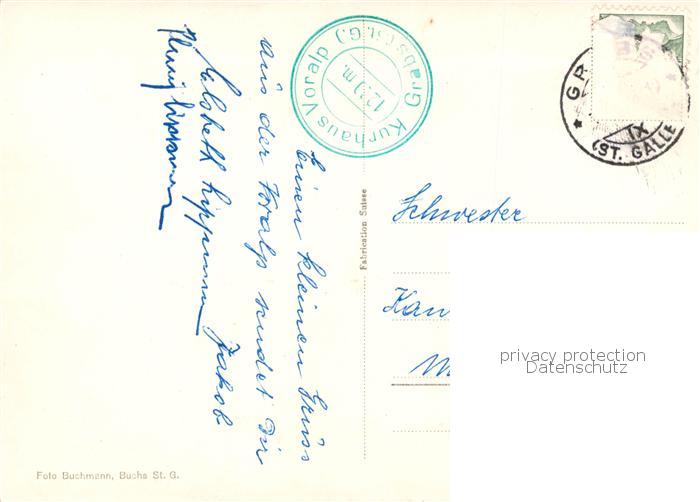 Einen kleinen Gruss
aus der Voralp sendet Dir
Elsbeth Lippuner Jakob
Lippuner
Kurhaus Voralp
Grabs (St.G.)
m.
GR
IX
(ST. GALLE
Fabrication Suisse
Schwester
Kan
privacy protection
Datenschutz
Foto Buchmann, Buchs St. G.